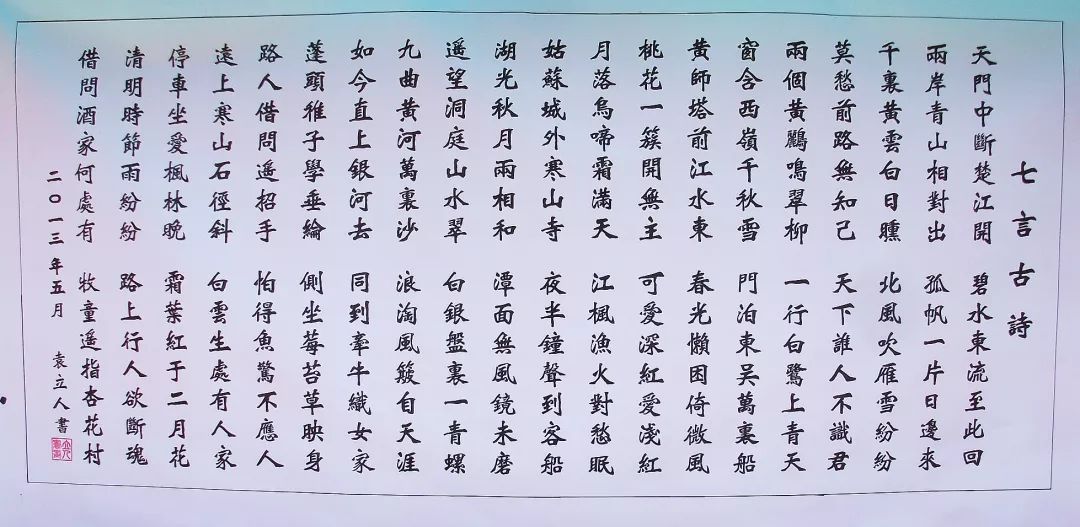 七言古詩
天門中斷楚江開 碧水東流至此回
兩岸青山相對出 孤帆一片日邊來
千裏黃雲白日曛 北風吹雁雪紛紛
莫愁前路無知己 天下誰人不識君
兩個黃鸝鳴翠柳 一行白鷺上青天
窗含西嶺千秋雪 門泊東吴萬裏船
黃師塔前江水東 春光懶困倚微風
桃花一簇開無主 可愛深紅愛淺紅
月落烏啼霜滿天 江楓漁火對愁眠
姑蘇城外寒山寺 夜半鐘聲到客船
湖光秋月兩相和 潭面無風鏡未磨
遥望洞庭山水翠 白銀盤裏一青螺
九曲黃河萬裏沙 浪淘風簸自天涯
如今直上銀河去 同到牽牛織女家
蓬頭稚子學垂綸 側坐莓苔草映身
路人借問遥招手 怕得魚驚不應人
遠上寒山石徑斜 白雲生處有人家
停車坐愛楓林晚 霜葉紅于二月花
清明時節雨紛紛 路上行人欲斷魂
借問酒家何處有 牧童遥指杏花村
二〇一三年五月 袁立人書